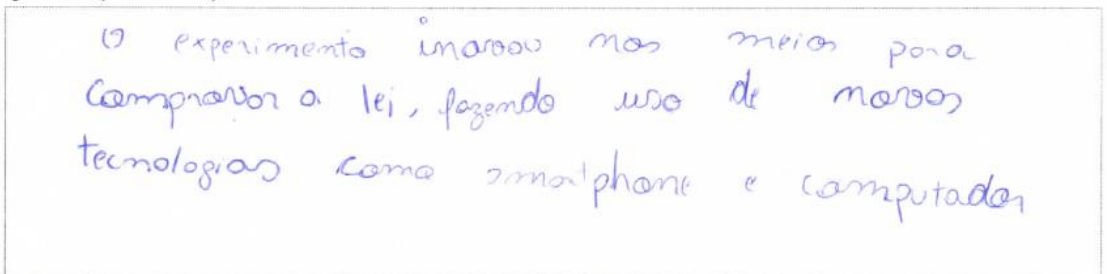 O experimento inovou nos meios para
comprovar a lei, fazendo uso de novas
tecnologias como smartphone e computador